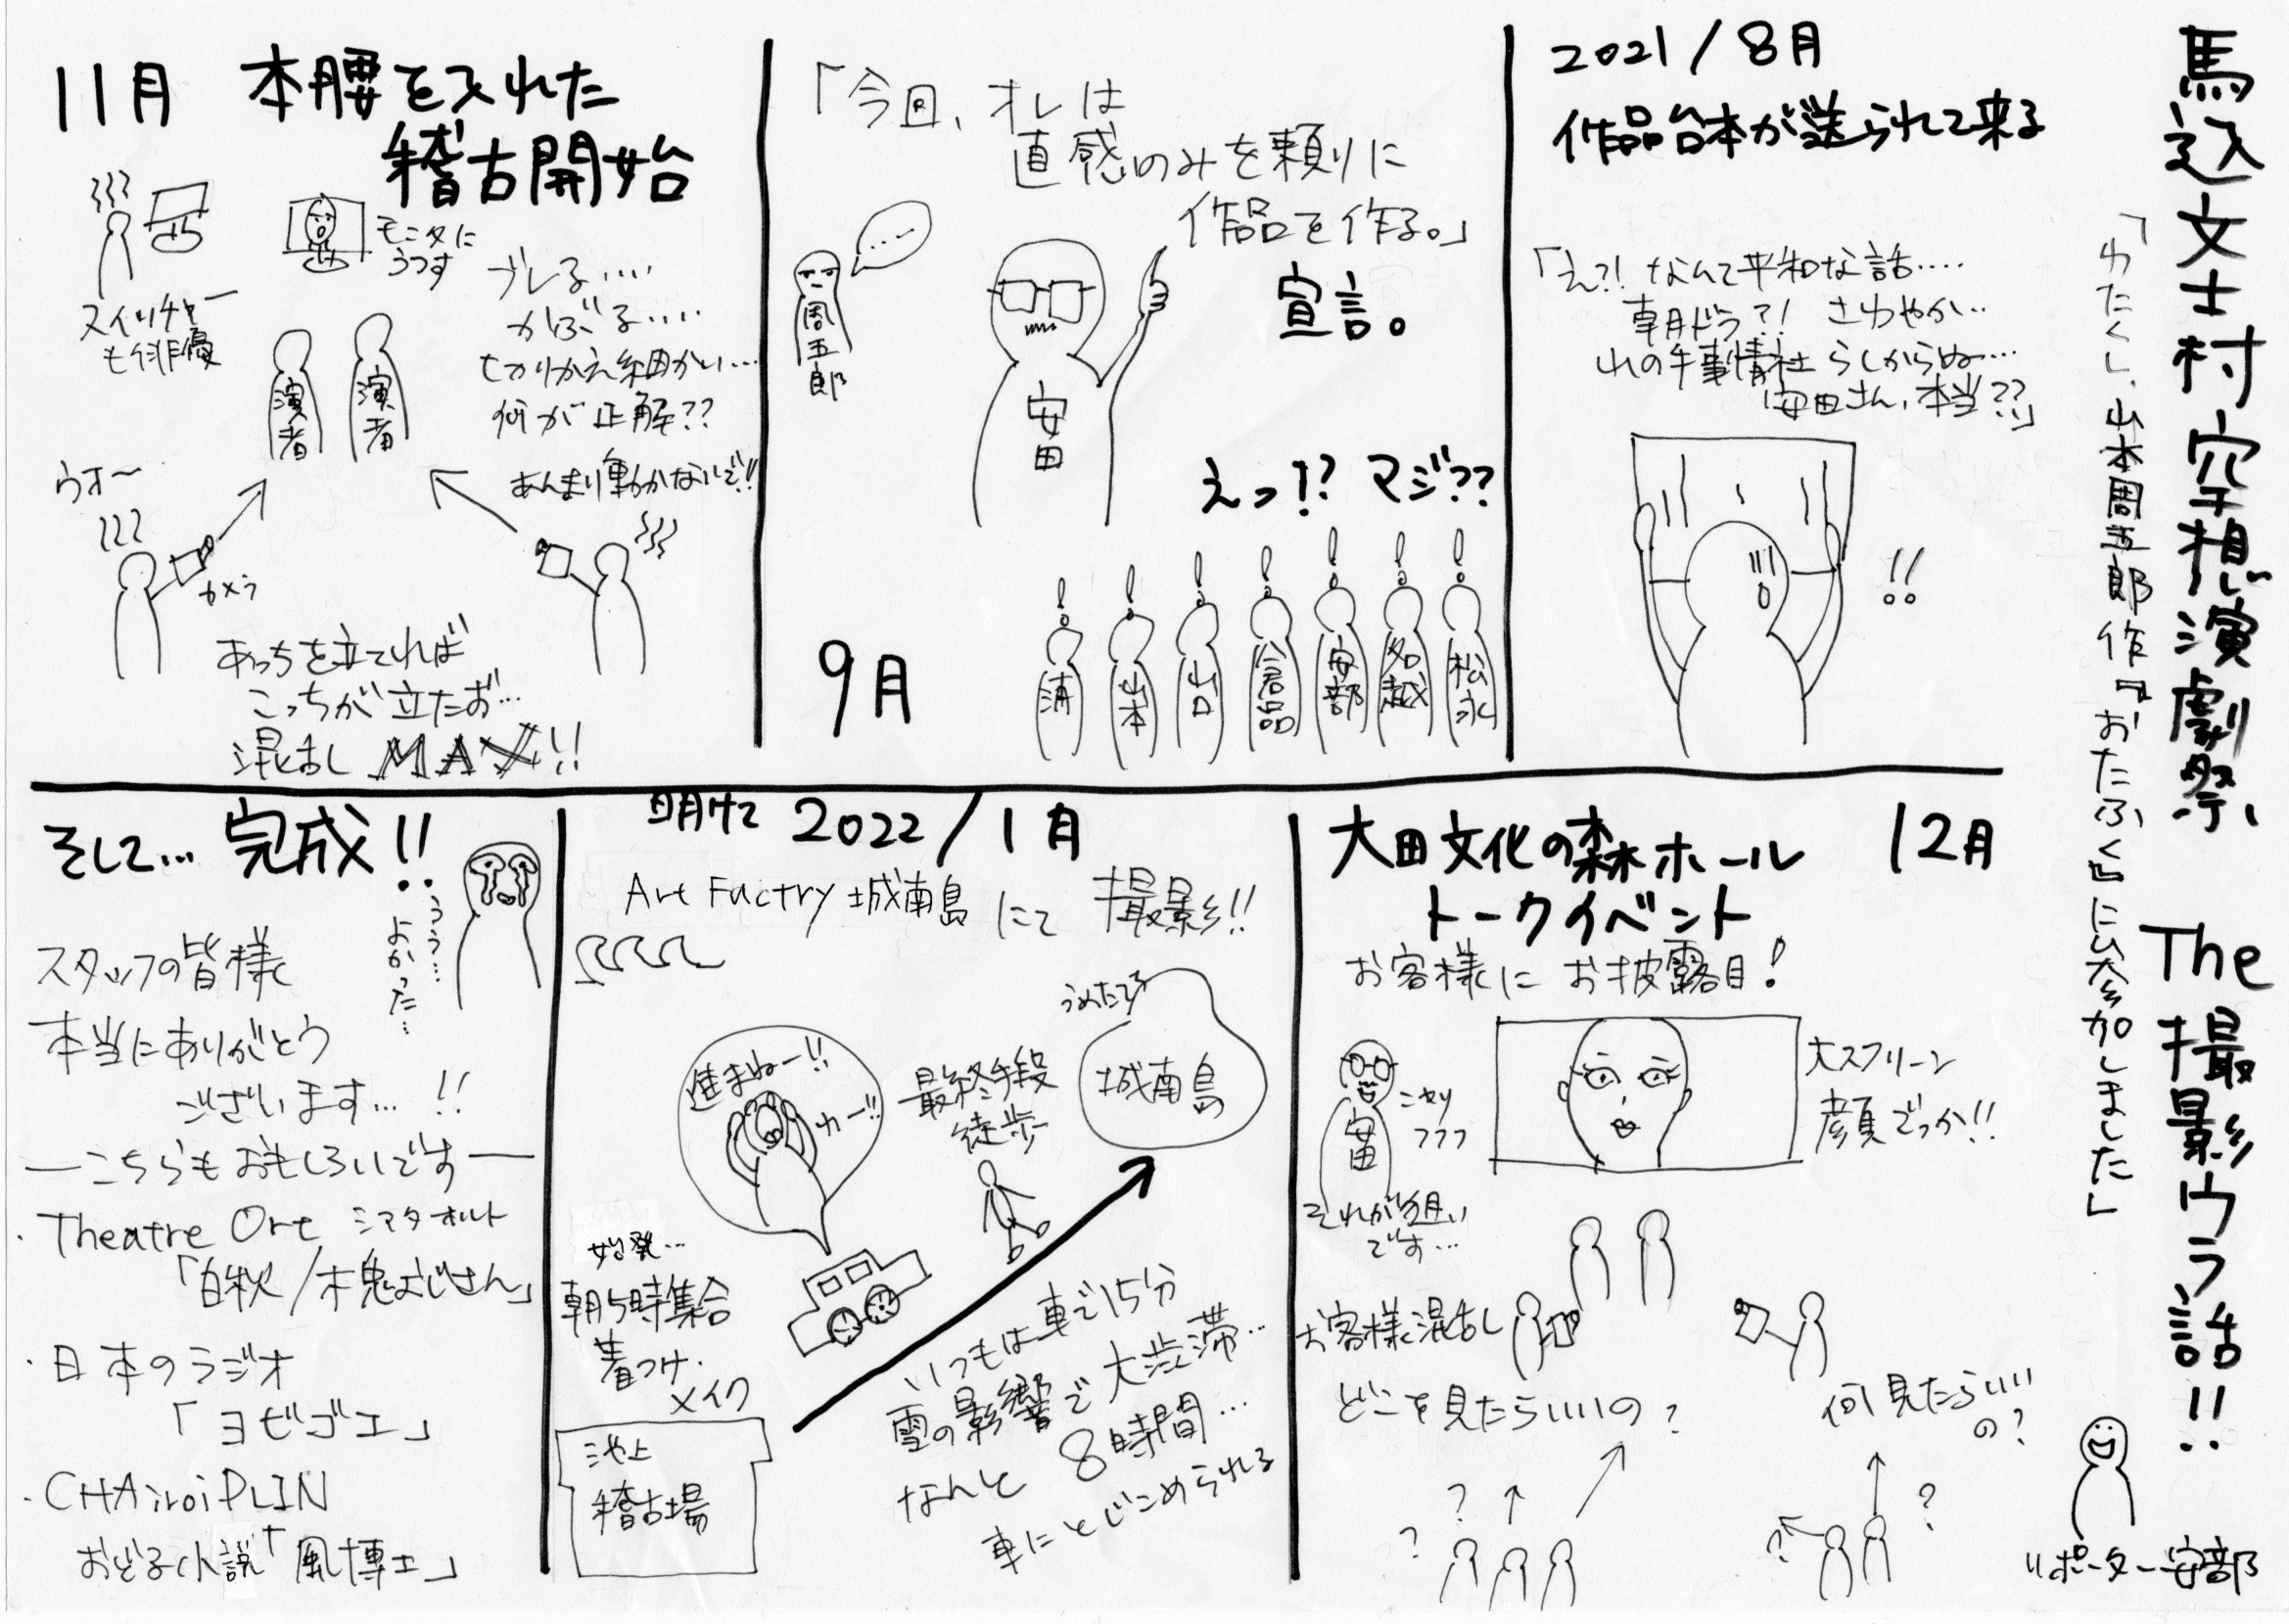 馬込文士村 空想演劇祭、The撮影ウラ話!!
「わたくし、山本周五郎作『おたふく』に参加しました」
リポーター安部
2021/8月
作品台本が送られて来る
「え?! なんて平和な話‥‥
朝ドラ?! さわやか‥
山の手事情社らしからぬ…
安田さん、本当??」
!!
「今回、オレは
直感のみを頼りに
作品を作る。」
宣言。
…
周五郎
安田
えっ!? マジ??
松永
名越
安部
倉品
山口
山本
浦
9月
11月 本腰を入れた
稽古開始
スイッチャー
も俳優
モニタに
うつす
演者
演者
ブレる‥‥
かぶる‥‥
切りかえ細かい…
何が正解??
あんまり動かないで!!
ウオ〜
カメラ
あっちを立てれば
こっちが立たず…
混乱しMAX!!
12月
大田文化の森ホール
トークイベント
お客様にお披露目!
安田
ニヤリ
フフフ
それが狙い
です…
大スクリーン
顔でっか!!
お客様混乱し
どこを見たらいいの?
何見たらいい
の?
?
?
?
?
明けて 2022/1月
Art Factry城南島にて 撮影!!
うめたて
城南島
進まねー!!
わー!!
最終手段
徒歩
始発…
朝5時集合
着つけ・
メイク
池上
稽古場
いつもは車で15分
雪の影響で大渋滞…
なんと8時間…
車にとじこめられる
そして… 完成!!
ううう…
よかった…
スタッフの皆様
本当にありがとう
ございます… !!
―こちらもおもしろいです―
・Theatre Ort シアタオルト
「白秋/木兎おじさん」
・日本のラジオ
「ヨビゴエ」
・CHAiroiPLIN
おどる小説「風博士」